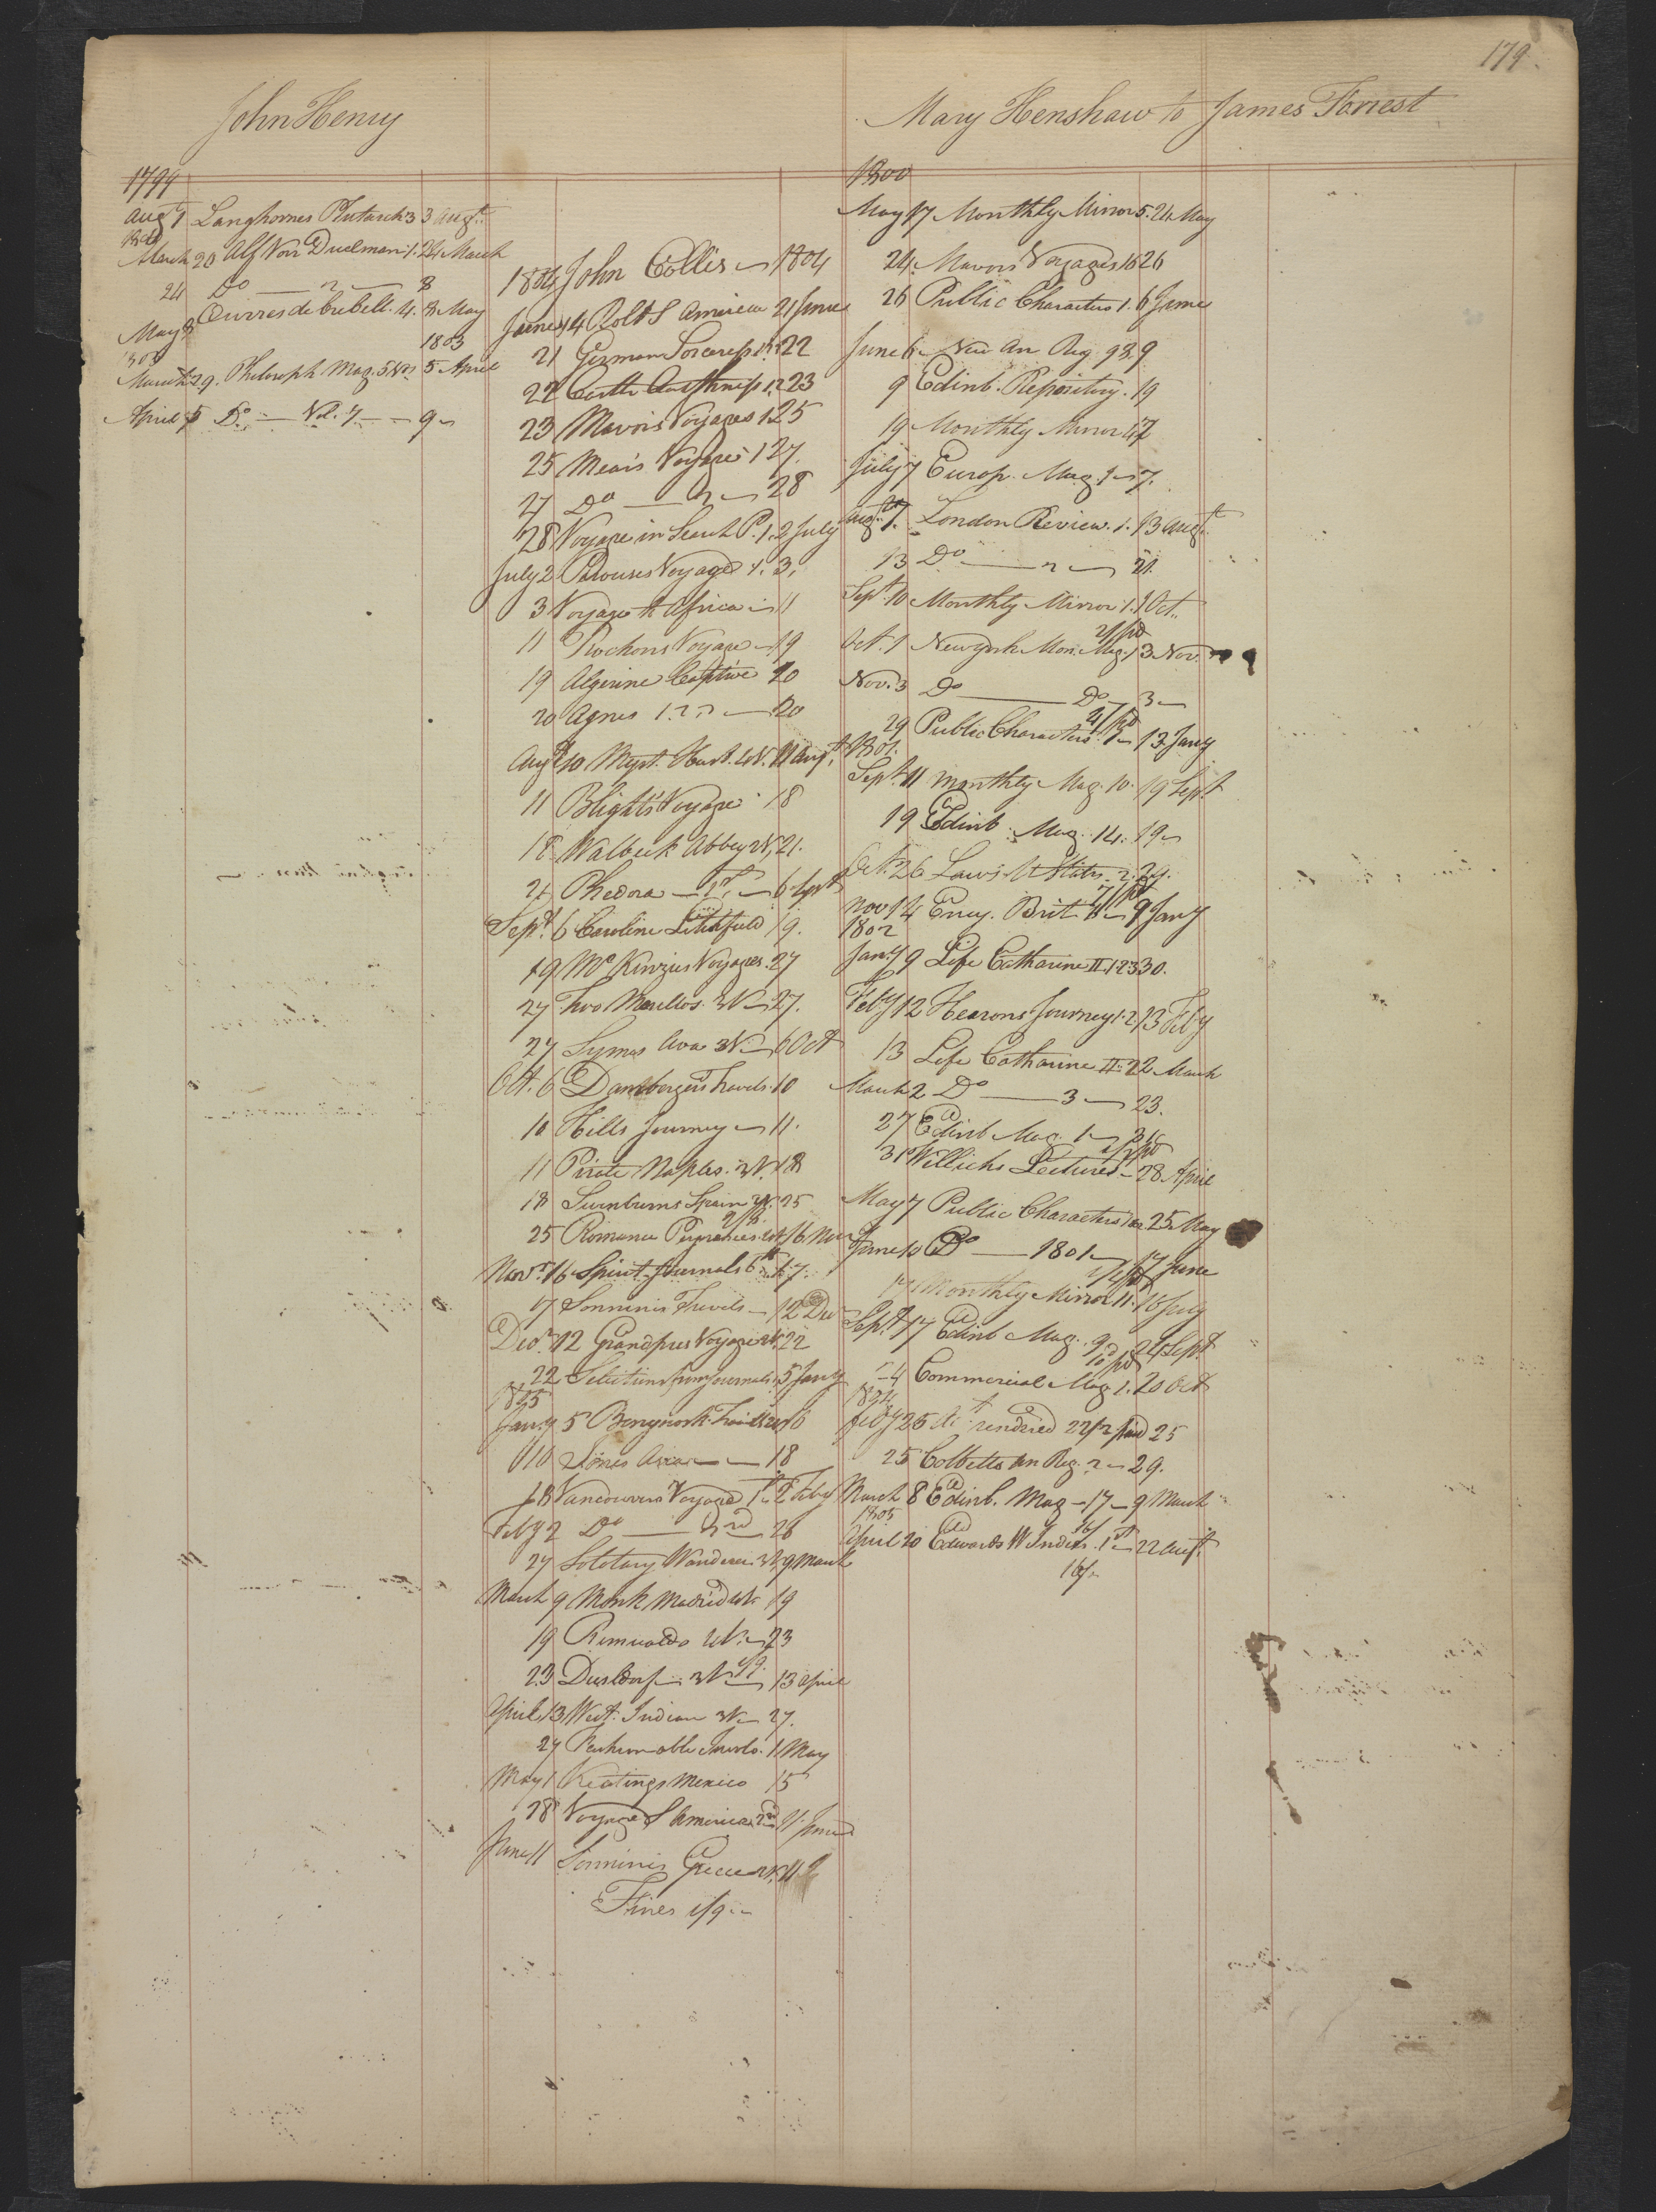 179.
John Henry
1799
Augt 1 Langhornes Plutarch 3 3 Augt.
March 20 Alf Von Duelman 1. 24 March
24 Do 2 8
May 8 Ouvres de Crebell. 4. 8 May
1803
1803
March 29. Philosoph. Mag. 5 Vol 5 April
April 5 Do Vol. 7 9
1804 John Collis 1804
June 14 Rolt S America 21 June
21 German Sorceress 22
22 Castle 23
23 Mavors Voyages 1 25
25 Mears Voyages 1 27.
27 Do 2 28
28 Voyage in Search P. 1. 2 July
July 2 Perouses Voyage 1. 3.
3 Voyage to Africa 11
11 Rochons Voyage 19
19 Algerine Captive 20
20 Agnes 1. 2. 3 20
Augt 10 Myst. Husb. 4V. 11 Augt
11 Blights Voyage 18
18 Walbeck Abbey 2V. 21.
21 Phedora 1st 6 Sept
Sept. 6 Caroline Litchfield 19.
19 McKinzies Voyages. 27
27 Two Marillos. 3V 27.
27 Symes Ava 3V. 6 Oct
Oct. 6 Dambergers Travels 10
10 Hills Journey 11.
11 Pirate Naples. 3V. 18
18 Swinburns Spain 2V. 25
25 Romance Pyrenees. 16 Nov
Novr. 16 Spirit Journals 6th 17.
17 Sonninis Travels 12 Dec
Decr. 12 Grandpres Voyage 2V. 22
22 Selections from Journals 5 Jany
1805
Jany 5 10
10 Jones Asia 18
18 Vancouvers Voyage 1st 2 Feby
Feby 2 Do 2nd 26
27 Solotary Wanderer 3V. 9 March
March 9 Monk Madrid 4V. 19
19 Romualdo 2V. 23
23 Dusseldorf 3V. 13 April
April 13 West Indian 3V. 27.
27 Fashionable Involv. 1 May
May 1 Keatings Mexico 15
28 Voyage S America 2nd 11 June
June 11 Sonninis Greece 2V. 11
Fines 1/9.
Mary Henshaw to James Forrest
1800
May 17 Monthly Mirror 5. 24 May
24 Mavors Voyages 16 26
26 Public Characters 1. 6 June
June 6 New An Reg. 93. 9
9 Edinb. Repository. 19
19 Monthly Mirror
July 7 Europ. Mag. 1 7.
Augt. 7. London Review. 1. 13 Augt.
13 Do 2 21.
Sept. 10 Monthly Mirror 1. 1 Oct.
Oct. 1 Newyork Mon. Mag. 1 3 Nov.
Nov. 3 Do Do 3
29 Public Characters 1 13 Jany
1801.
Sept. 11 Monthly Mag. 10. 19 Sept
19 Edinb. Mag. 14. 19
Oct. 26 Laws U States 2. 29.
Nov 14 Ency. Brit. 9 Jany
1802
Jany 9 Life Catharine II 1 2 3 30.
Feby 12 Hearons Journey 1. 2. 13 Feby
13 Life Catharine II 2 2 March
March 2 Do 3 23.
27 Edinb Mag. 1 31
31 Willichs Lectures 28 April
May 7 Public Characters 25 May
June 10 Do 1801 17 June
17 Monthly Mirror 11. 16 July
Sept. 17 Edinb Mag. 9 24 Sept
24 Commercial Mag. 1. 20 Oct
1804
Feby 25 Act rendered 22/2 paid 25
25 Cobbetts An Reg. 2 29.
March 8 Edinb. Mag 17 9 March
1805
April 20 Edwards W Indies. 1st 22 Augt.
16/